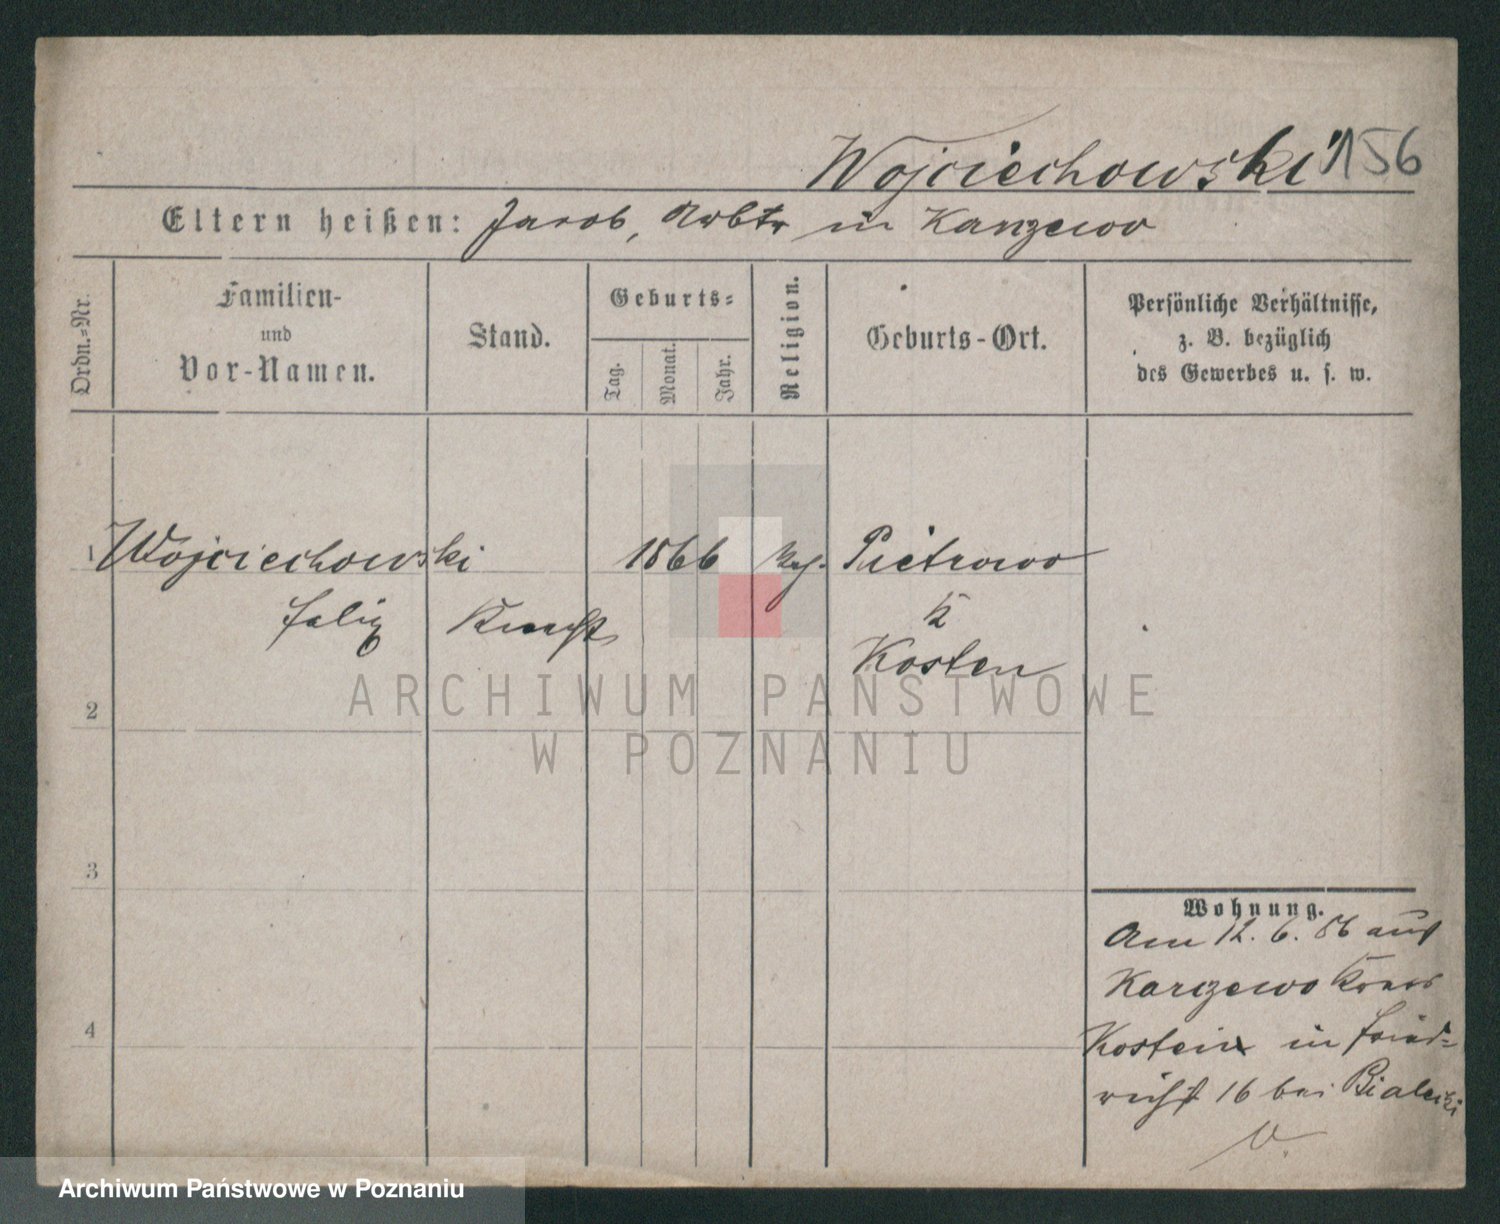 Wojciechowski 156
Eltern heißen: Jacob, Arbtr in Karczewo
Ordn.-Nr.
Familien-
und
Vor-Namen.
Stand.
Geburts-
Tag.
Monat.
Jahr.
Religion.
Geburts-Ort.
Persönliche Verhältnisse,
z. B. bezüglich
des Gewerbes u. s. w.
1 Wojciechowski 1866 Pietrowo
Felix Knecht K
Kosten
2
3
4
Wohnung.
Am 12. 6. 86 aus
Karczewo Kreis
Kosten in Fried-
richst 16 bei Bialecki
ARCHIWUM PAŃSTWOWE
W POZNANIU
Archiwum Państwowe w Poznaniu